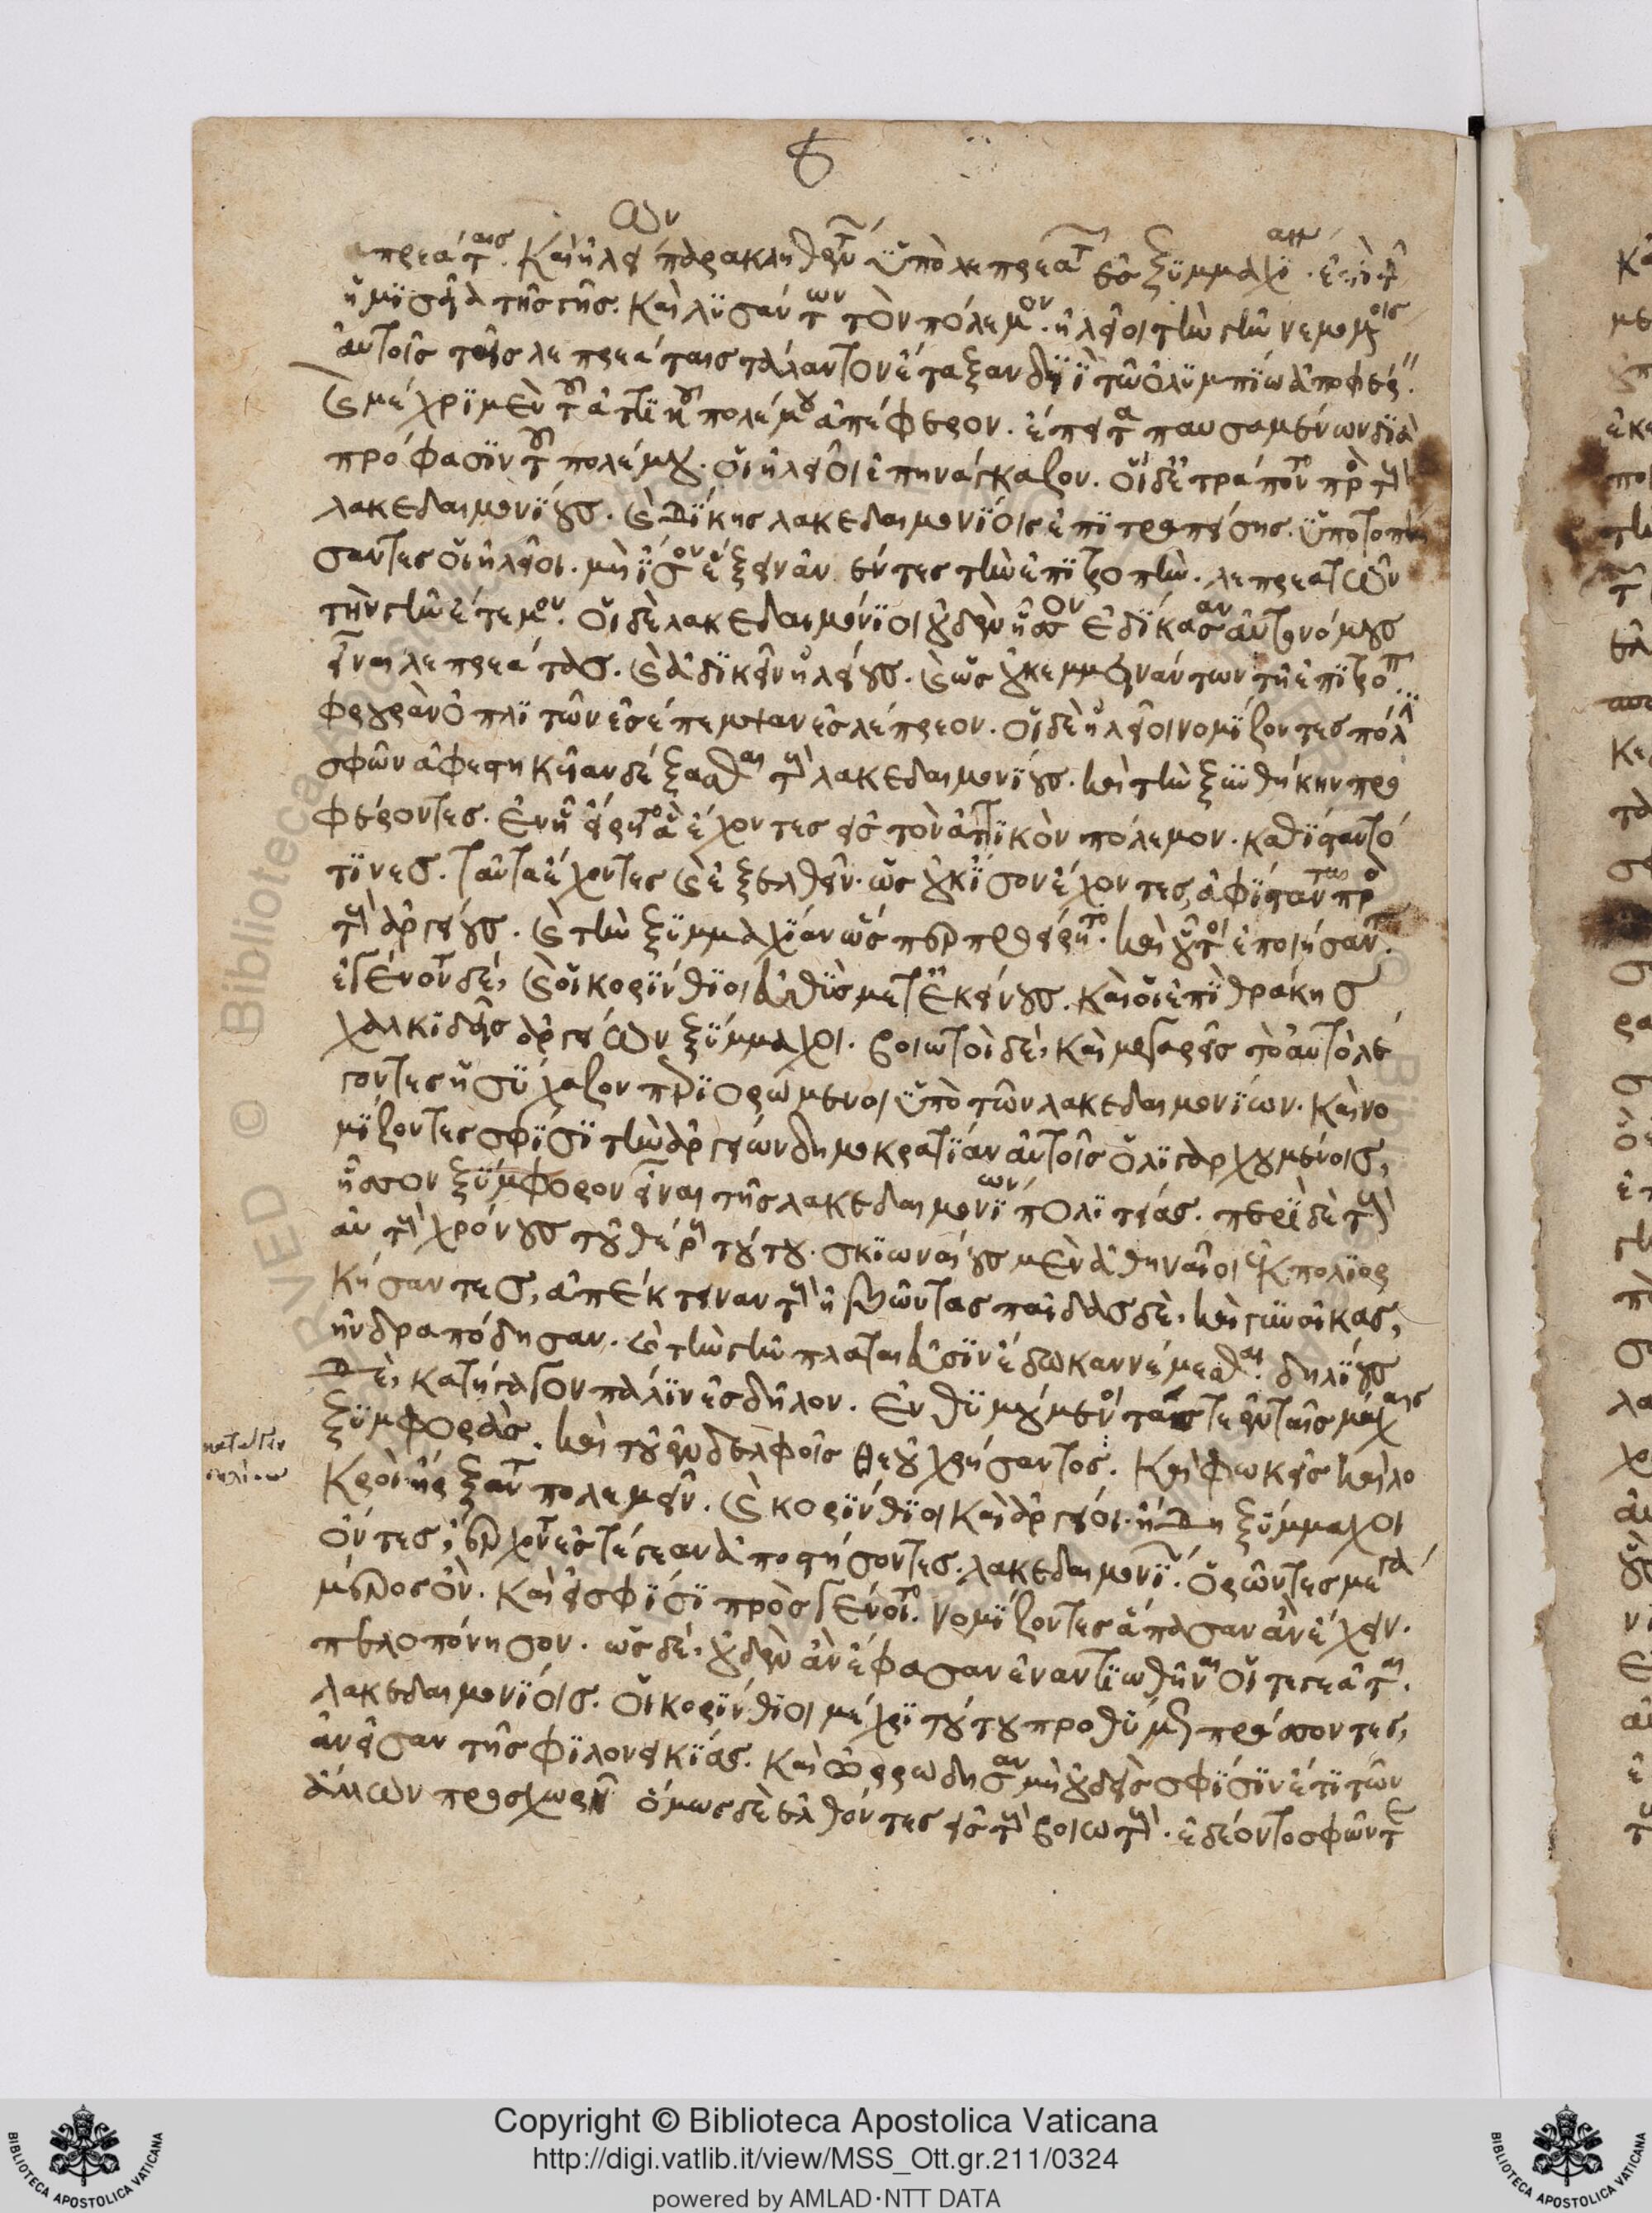 πρεάταις. καὶ ἠλείων παρακληθέντων ὑπὸ λεπρεατῶν ἐς ξυμμαχίαν ἐπὶ τῆ
ἡμισείᾳ τῆς γῆς. καὶ λυσάντων τὸν πόλεμον. ἠλεῖοι τὴν γῆν νεμομένοις
αὐτοῖς τοῖς λεπρεάταις τάλαντον ἔταξαν διὶ τῶ ὀλυμπίω ἀποφέρειν
καὶ μέχρι μὲν τοῦ ἀττικοῦ πολέμου ἀπέφερον. ἔπειτα παυσαμένων διὰ
πρόφασιν τοῦ πολέμου. οἱ ἠλεῖοι ἐπηνάγκαζον. οἱ δὲ ἐτράποντο πρὸς τοὺς
λακεδαιμονίους. καὶ δίκης λακεδαιμονίοις ἐπιτραπείσης. ὑποτοπή
σαντες οἱ ἠλεῖοι. μὴ ἴσον ἕξειν ἀνέντες τὴν ἐπιτροπὴν. λεπρεατῶν
τὴν γῆν ἔτεμον. οἱ δὲ λακεδαιμόνιοι οὐδὲν ἧσσον ἐδίκασαν αὐτονόμους
εἶναι λεπρεάτας. καὶ ἀδικεῖν ἠλείους. καὶ ὡς οὐκ ἐμμεινάντων τῆ ἐπιτροπῆ
φρουρὰν ὁπλιτῶν ἐσέπεμψαν ἐς λέπρεον. οἱ δὲ ἠλεῖοι νομίζοντες πόλιν
σφῶν ἀφεστηκυῖαν δέξασθαι τοὺς λακεδαιμονίους. καὶ τὴν ξυνθήκην προ
φέροντες. ἐν ἧ εἴρητο ἃ ἔχοντες ἐς τὸν ἀττικὸν πόλεμον. καθίσταντό
τινες. ταῦτα ἔχοντες καὶ ἐξελθεῖν. ὡς οὐκ ἴσον ἔχοντες, ἀφίστανται πρὸς
τοὺς ἀργείους. καὶ τὴν ξυμμαχίαν ὥσπερ προείρητο. καὶ οὗτοι ἐποιήσαντο.
ἐγένοντο δέ, καὶ οἱ κορίνθιοι εὐθὺς μετ' ἐκείνους. καὶ οἱ ἐπὶ θράκης
χαλκιδῆς ἀργείων ξύμμαχοι. βοιωτοὶ δὲ, καὶ μεγαρεῖς τὸ αὐτὸ λέ
γοντες ἡσύχαζον περιορώμενοι ὑπὸ τῶν λακεδαιμονίων. καὶ νο
μίζοντες σφίσι τὴν ἀργείων δημοκρατίαν αὐτοῖς ὀλιγαρχουμένοις,
ἧσσον ξύμφορον εἶναι τῆς λακεδαιμονίων πολιτείας. περὶ δὲ τοὺς
αὐτοὺς χρόνους τοῦ θέρους τούτου. σκιωναίους μὲν ἀθηναῖοι ἐκπολιορ
κήσαντες, ἀπέκτειναν τοὺς ἡβῶντας παῖδας δὲ, καὶ γυναῖκας,
ἠνδραπόδησαν. καὶ τὴν γῆν πλαταιεῦσιν ἔδωκαν νέμεσθαι. δηλίους
δὲ, κατήγαγον πάλιν ἐς δῆλον. ἐνθυμούμενοι τάς τε ἐν ταῖς μάχαις
ξυμφοράς. καὶ τοῦ ἐν δελφοῖς θεοῦ χρήσαντος. καὶ φωκεῖς καὶ λο
κροὶ ἤρξαντο πολεμεῖν. καὶ κορίνθιοι καὶ ἀργεῖοι ἤδη ξύμμαχοι
ὄντες, ἔρχονται ἐς τέγεαν ἀποστήσοντες λακεδαιμονίων. ὁρῶντες μέγα
μέρος ὄν. καὶ εἰ σφίσι προσγένοιτο. νομίζοντες ἅπασαν ἂν ἔχειν.
πελοπόνησον. ὡς δὲ, οὐδὲν ἂν ἔφασαν ἐναντιωθῆναι οἱ τεγεᾶται.
λακεδαιμονίοις. οἱ κορίνθιοι μέχρι τούτου προθύμως πράσσοντες,
ἀνεῖσαν τῆς φιλονεικίας. καὶ ὀρρώδησαν μὴ οὐδεὶς σφίσιν ἔτι τῶν
ἄλλων προσχωρῆ ὅμως δὲ ἐλθόντες ἐς τοὺς βοιωτοὺς. ἐδέοντο σφῶν τε
Copyright © Biblioteca Apostolica Vaticana
http://digi.vatlib.it/view/MSS_Ott.gr.211/0324
powered by AMLAD·NTT DATA
BIBLIOTECA APOSTOLICA VATICANA
BIBLIOTECA APOSTOLICA VATICANA